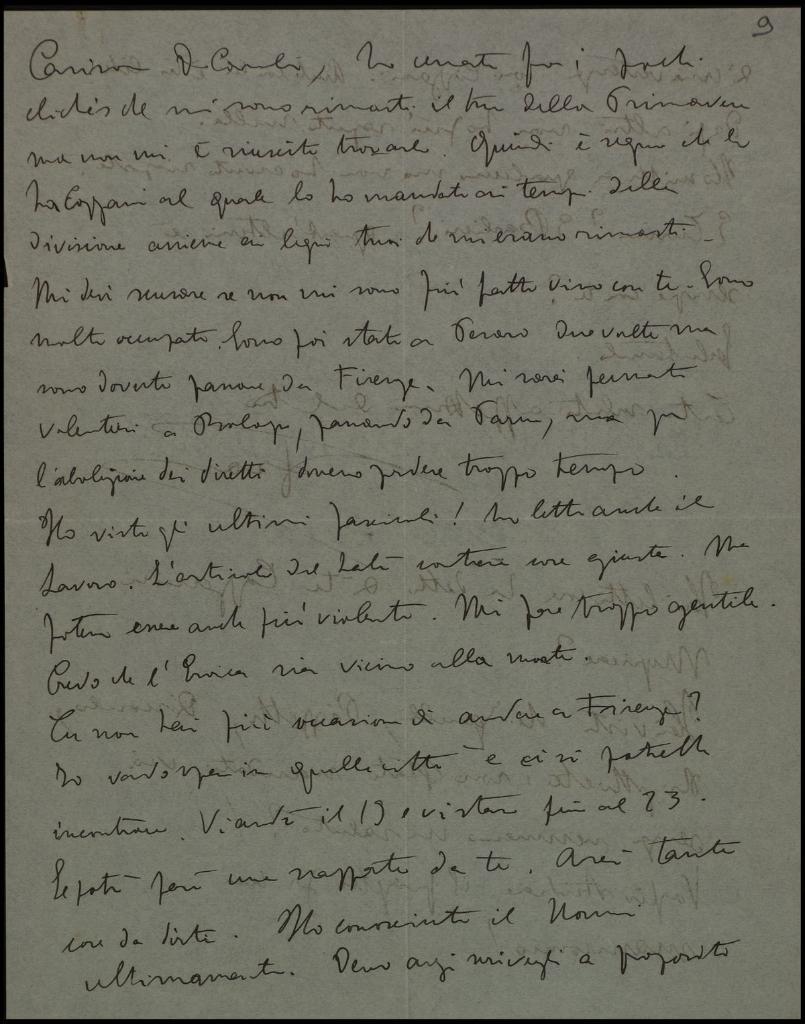 9
Carissimo De Carolis, ho cercato fra i pochi
clichés che mi sono rimasti il tuo della Primavera
ma non mi è riuscito trovarlo. Quindi è segno che lo
ha Cozzani al quale lo ho mandato ai tempi della
divisione assieme ai legni tuoi che mi erano rimasti.
Mi devi scusare se non mi sono più fatto vivo con te. Sono
molto occupato. Sono poi stato a Pesaro due volte ma
sono dovuto passare da Firenze. Mi sarei fermato
volentieri a Bologna, passando da Parma, ma per
l'abolizione dei diretti dovevo perdere troppo tempo.
Ho visto gli ultimi fascicoli! ho letto anche il
Lavoro. L'articolo del contiene cose giuste. Ma
poteva essere anche più violento. Mi pare troppo gentile.
Credo che l'Eroica sia vicino alla morte.
Tu non hai più occasione di andare a Firenze?
Io vado spesso in quella città e ci si potrebbe
incontrare. Vi andrò il 19 e vi starò fino al 23.
Se potrò farò una scappata da te. Avrei tante
cose da dirti. Ho conosciuto il Nomi
ultimamente. Devo anzi scrivergli a proposito